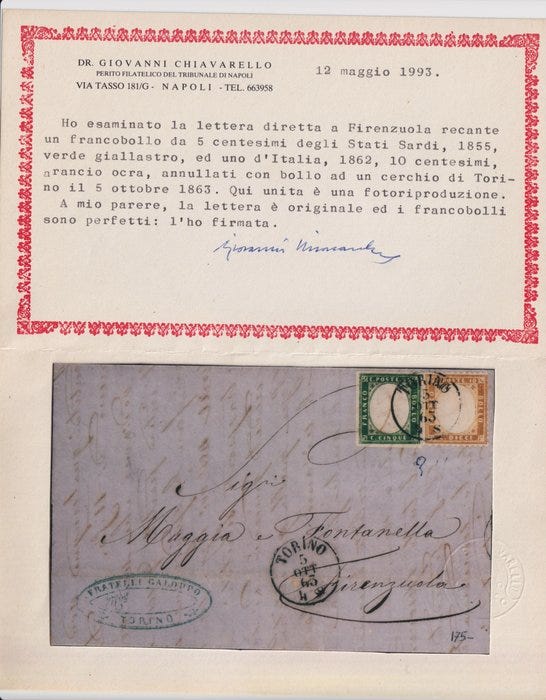 DR. GIOVANNI CHIAVARELLO
PERITO FILATELICO DEL TRIBUNALE DI NAPOLI
VIA TASSO 181/G - NAPOLI - TEL. 663958
12 maggio 1993.
Ho esaminato la lettera diretta a Firenzuola recante
un francobollo da 5 centesimi degli Stati Sardi, 1855,
verde giallastro, ed uno d'Italia, 1862, 10 centesimi,
arancio ocra, annullati con bollo ad un cerchio di Tori-
no il 5 ottobre 1863. Qui unita è una fotoriproduzione.
A mio parere, la lettera è originale ed i francobolli
sono perfetti: l'ho firmata.
C. POSTE
FRANCO
BOLLO
C. CINQUE
TORINO
5
OTT
63
BOLLO
DIECI
Sigri
Maggia e Fontanella
Firenzuola
TORINO
5
OTT
63
FRATELLI GALOPPO
TORINO
175-